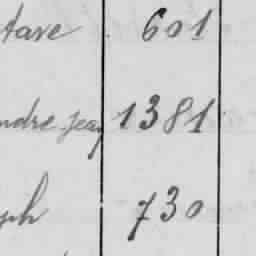 tave 601
ndre Jean 1381
ph 730